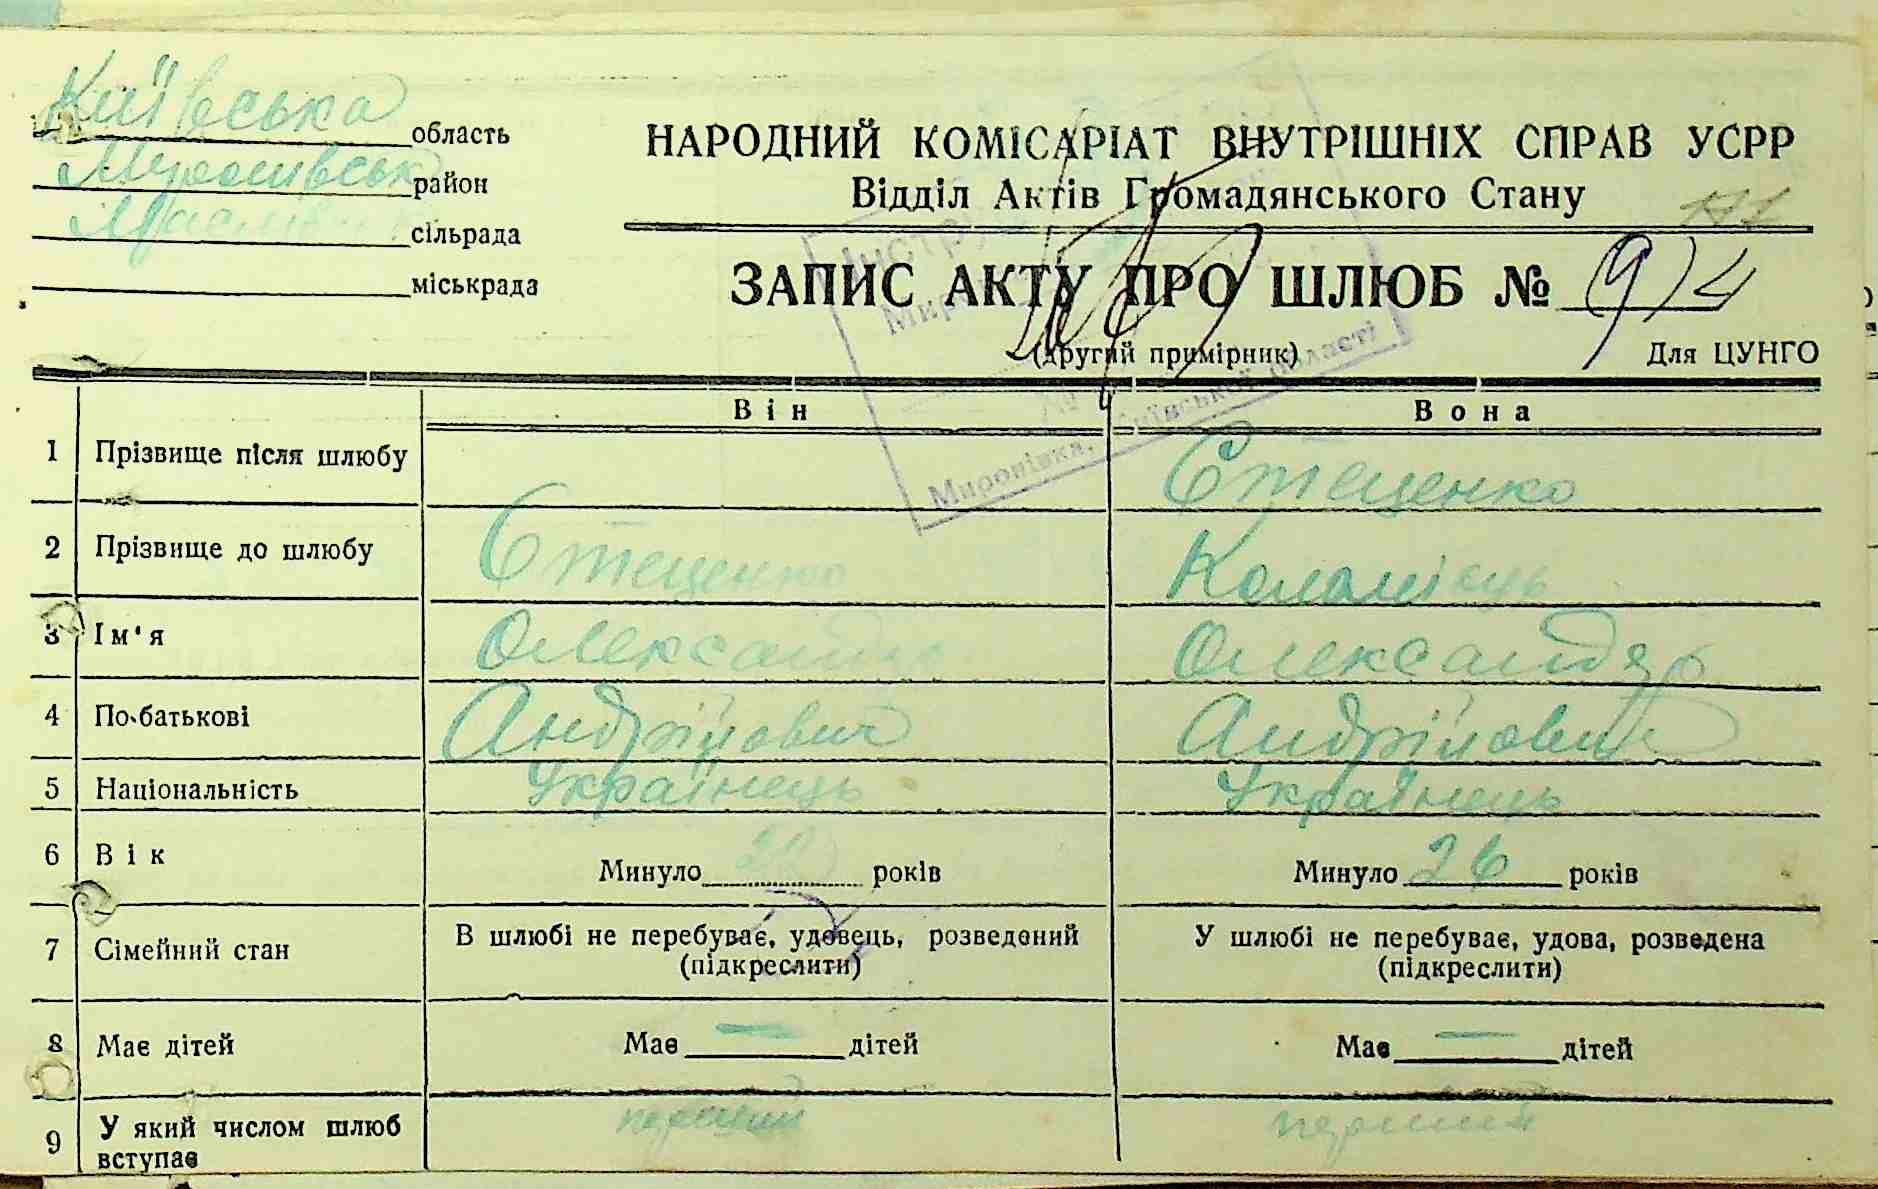 Київська область
Миронівськ район
Маслівк сільрада
міськрада
НАРОДНИЙ КОМІСАРІАТ ВНУТРІШНІХ СПРАВ УСРР
Відділ Актів Громадянського Стану
ЗАПИС АКТУ ПРО ШЛЮБ №
(другий примірник)
Для ЦУНГО
Миронівка, Київської області
Він Вона
1 Прізвище після шлюбу Стеценко
2 Прізвище до шлюбу Стеценко Коломієць
3 Ім'я Олександр Олександр
4 По-батькові Андрійович Андрійович
5 Національність Українець Українець
6 Вік Минуло 22 років Минуло 26 років
7 Сімейний стан В шлюбі не перебуває, удовець, розведений (підкреслити) У шлюбі не перебуває, удова, розведена (підкреслити)
8 Має дітей Має — дітей Має — дітей
9 У який числом шлюб вступає перший перший